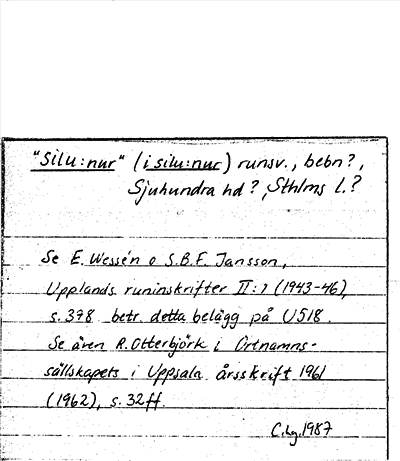 "silu:nur" (i silu:nur) runsv., bebn?,
Sjuhundra hd?, Sthlms l.?
Se E. Wessén o S.B.F. Jansson,
Upplands runinskrifter II:1 (1943-46),
s. 378 betr. detta belägg på U518.
Se även R. Otterbjörk i Ortnamns-
sällskapets i Uppsala årsskrift 1961
(1962), s. 32ff.
C.hg. 1987